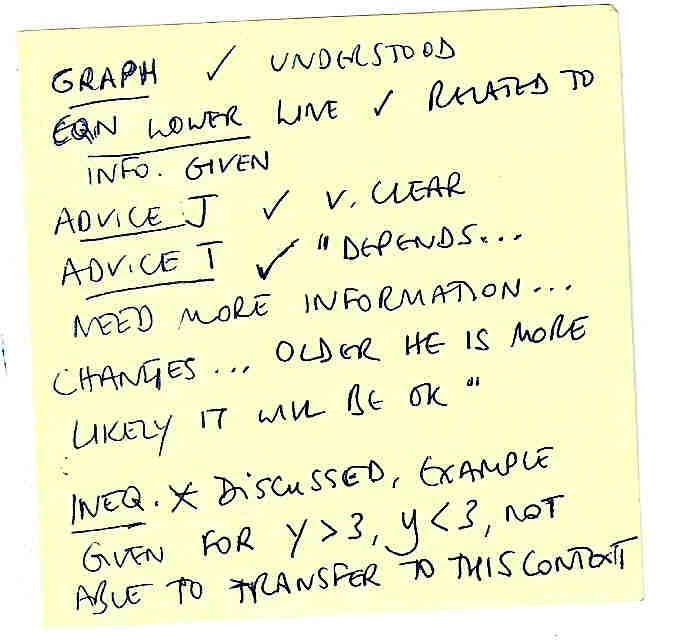 GRAPH ✓ UNDERSTOOD
EQN LOWER LINE ✓ RELATED TO
INFO. GIVEN
ADVICE J ✓ V. CLEAR
ADVICE T ✓ "DEPENDS...
NEED MORE INFORMATION...
CHANGES... OLDER HE IS MORE
LIKELY IT WILL BE OK"
INEQ. X DISCUSSED, EXAMPLE
GIVEN FOR Y > 3, y < 3, NOT
ABLE TO TRANSFER TO THIS CONTEXT